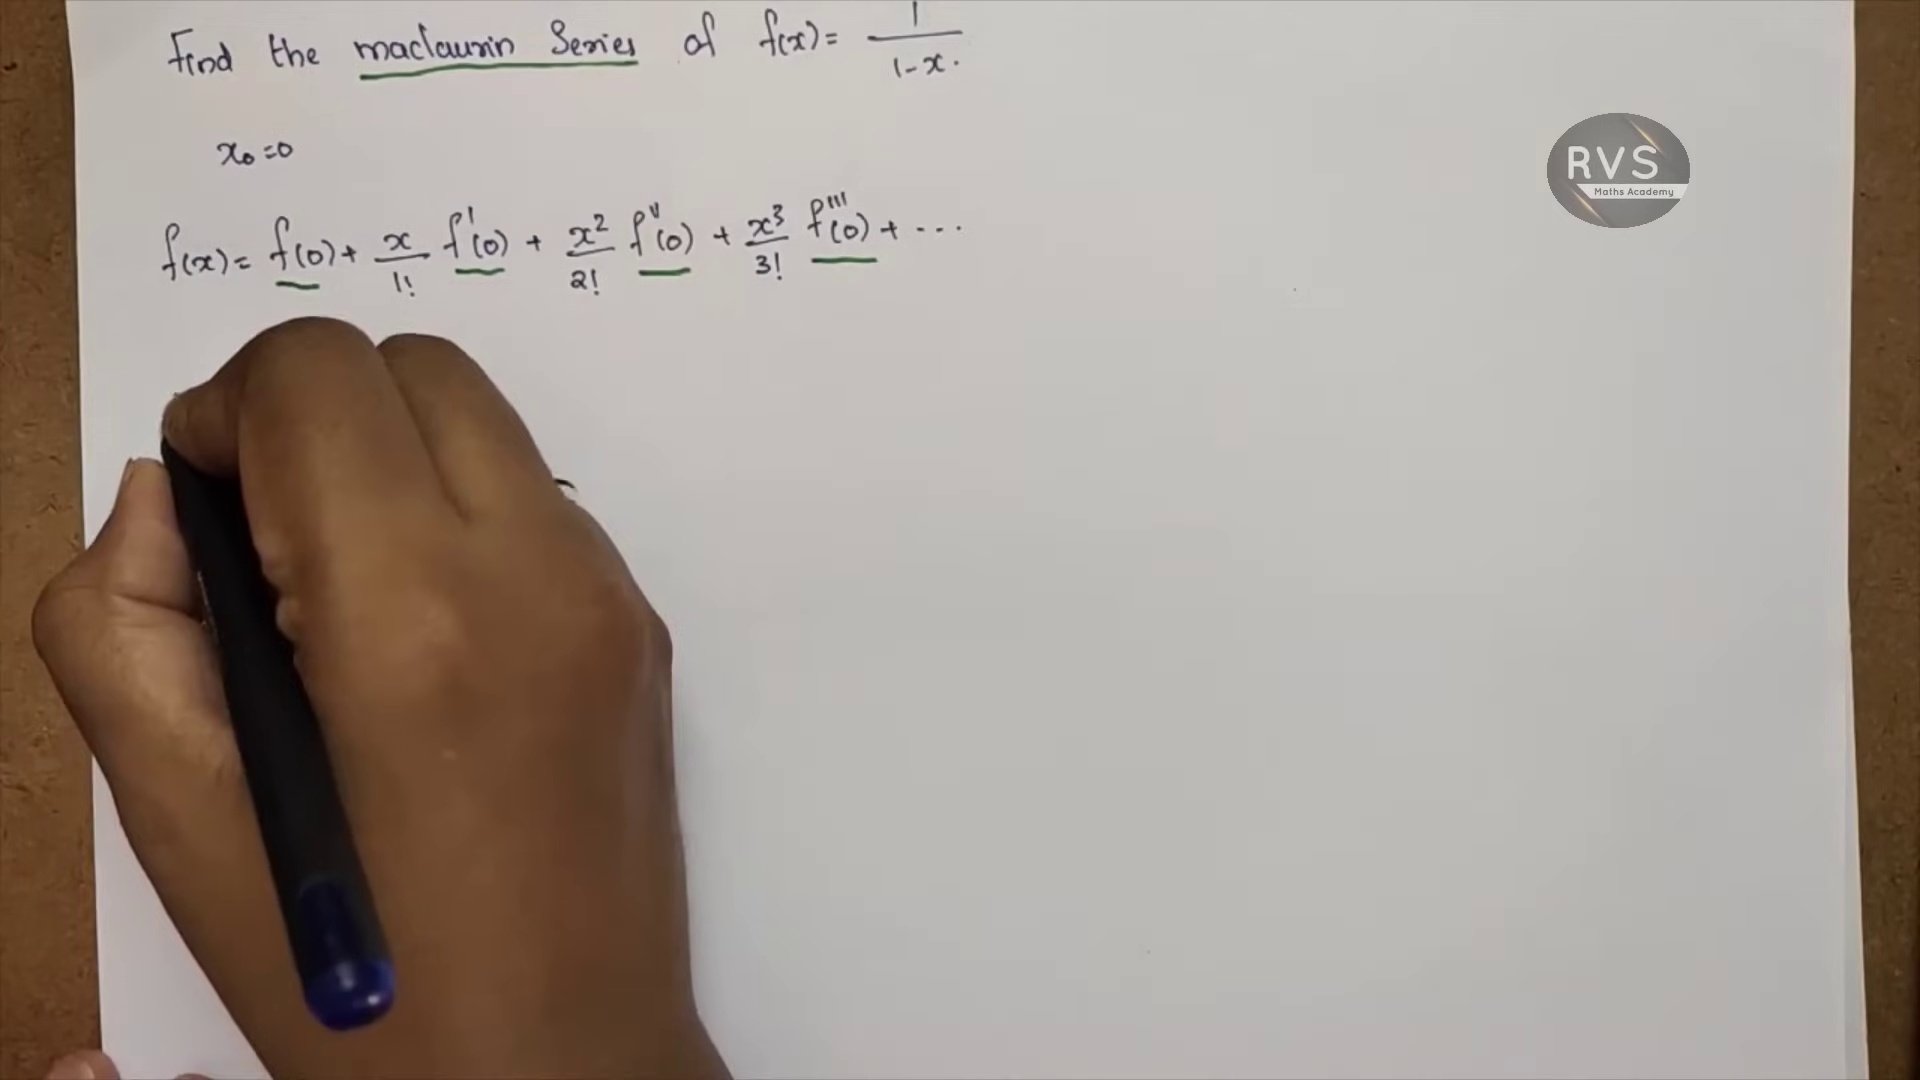 Find the maclaurin Series of f(x) = 1/(1-x).
x₀=0
f(x) = f(0) + x/1! f'(0) + x²/2! f''(0) + x³/3! f'''(0) + ...
RVS
Maths Academy